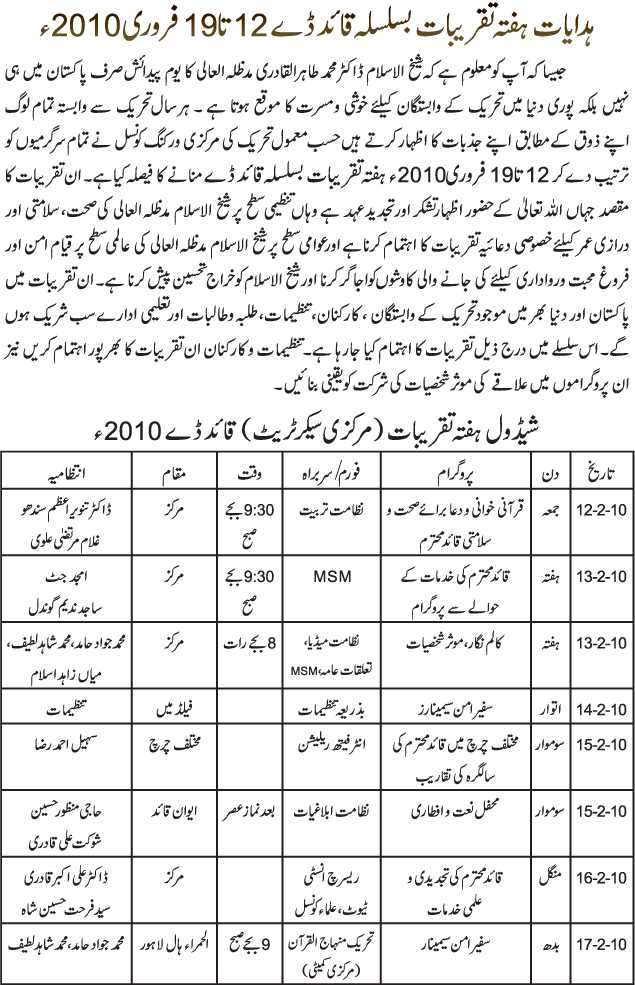 ہدایات ہفتہ تقریبات بسلسلہ قائد ڈے 12 تا 19 فروری 2010ء
جیسا کہ آپ کو معلوم ہے کہ شیخ الاسلام ڈاکٹر محمد طاہر القادری مدظلہ العالی کا یوم پیدائش صرف پاکستان میں ہی
نہیں بلکہ پوری دنیا میں تحریک کے وابستگان کیلئے خوشی ومسرت کا موقع ہوتا ہے ۔ ہر سال تحریک سے وابستہ تمام لوگ
اپنے ذوق کے مطابق اپنے جذبات کا اظہار کرتے ہیں حسب معمول تحریک کی مرکزی ورکنگ کونسل نے تمام سرگرمیوں کو
ترتیب دے کر 12 تا 19 فروری 2010ء ہفتہ تقریبات بسلسلہ قائد ڈے منانے کا فیصلہ کیا ہے۔ ان تقریبات کا
مقصد جہاں اللہ تعالیٰ کے حضور اظہار تشکر اور تجدید عہد ہے وہاں تنظیمی سطح پر شیخ الاسلام مدظلہ العالی کی صحت، سلامتی اور
درازی عمر کیلئے خصوصی دعائیہ تقریبات کا اہتمام کرنا ہے اور عوامی سطح پر شیخ الاسلام مدظلہ العالی کی عالمی سطح پر قیام امن اور
فروغ محبت ورواداری کیلئے کی جانے والی کاوشوں کو اجاگر کرنا اور شیخ الاسلام کو خراج تحسین پیش کرنا ہے۔ ان تقریبات میں
پاکستان اور دنیا بھر میں موجود تحریک کے وابستگان ، کارکنان، تنظیمات، طلبہ وطالبات اور تعلیمی ادارے سب شریک ہوں
گے۔ اس سلسلے میں درج ذیل تقریبات کا اہتمام کیا جا رہا ہے۔ تنظیمات و کارکنان ان تقریبات کا بھرپور اہتمام کریں نیز
ان پروگراموں میں علاقے کی موثر شخصیات کی شرکت کو یقینی بنائیں۔
شیڈول ہفتہ تقریبات (مرکزی سیکرٹریٹ) قائد ڈے 2010ء
تاریخ دن پروگرام فورم/سربراہ وقت مقام انتظامیہ
12-2-10 جمعہ قرآنی خوانی و دعا برائے صحت و نظامت تربیت 9:30 بجے مرکز ڈاکٹر تنویر اعظم سندھو
سلامتی قائد محترم صبح غلام مرتضیٰ علوی
13-2-10 ہفتہ قائد محترم کی خدمات کے MSM 9:30 بجے مرکز امجد جٹ
حوالے سے پروگرام صبح ساجد ندیم گوندل
13-2-10 ہفتہ کالم نگار، موثر شخصیات نظامت میڈیا، 8 بجے رات مرکز محمد جواد حامد، محمد شاہد لطیف،
تعلقات عامہ، MSM میاں زاہد اسلام
14-2-10 اتوار سفیر امن سیمینارز بذریعہ تنظیمات فیلڈ میں تنظیمات
15-2-10 سوموار مختلف چرچ میں قائد محترم کی انٹرفیتھ ریلیشن مختلف چرچ سہیل احمد رضا
سالگرہ کی تقاریب
15-2-10 سوموار محفل نعت و افطاری نظامت ابلاغیات بعد نماز عصر ایوان قائد حاجی منظور حسین
شوکت علی قادری
16-2-10 منگل قائد محترم کی تجدیدی و ریسرچ انسٹی مرکز ڈاکٹر علی اکبر قادری
علمی خدمات ٹیوٹ، علماء کونسل سید فرحت حسین شاہ
17-2-10 بدھ سفیر امن سیمینار تحریک منہاج القرآن 9 بجے صبح الحمراء ہال لاہور محمد جواد حامد، محمد شاہد لطیف
(مرکزی کمیٹی)